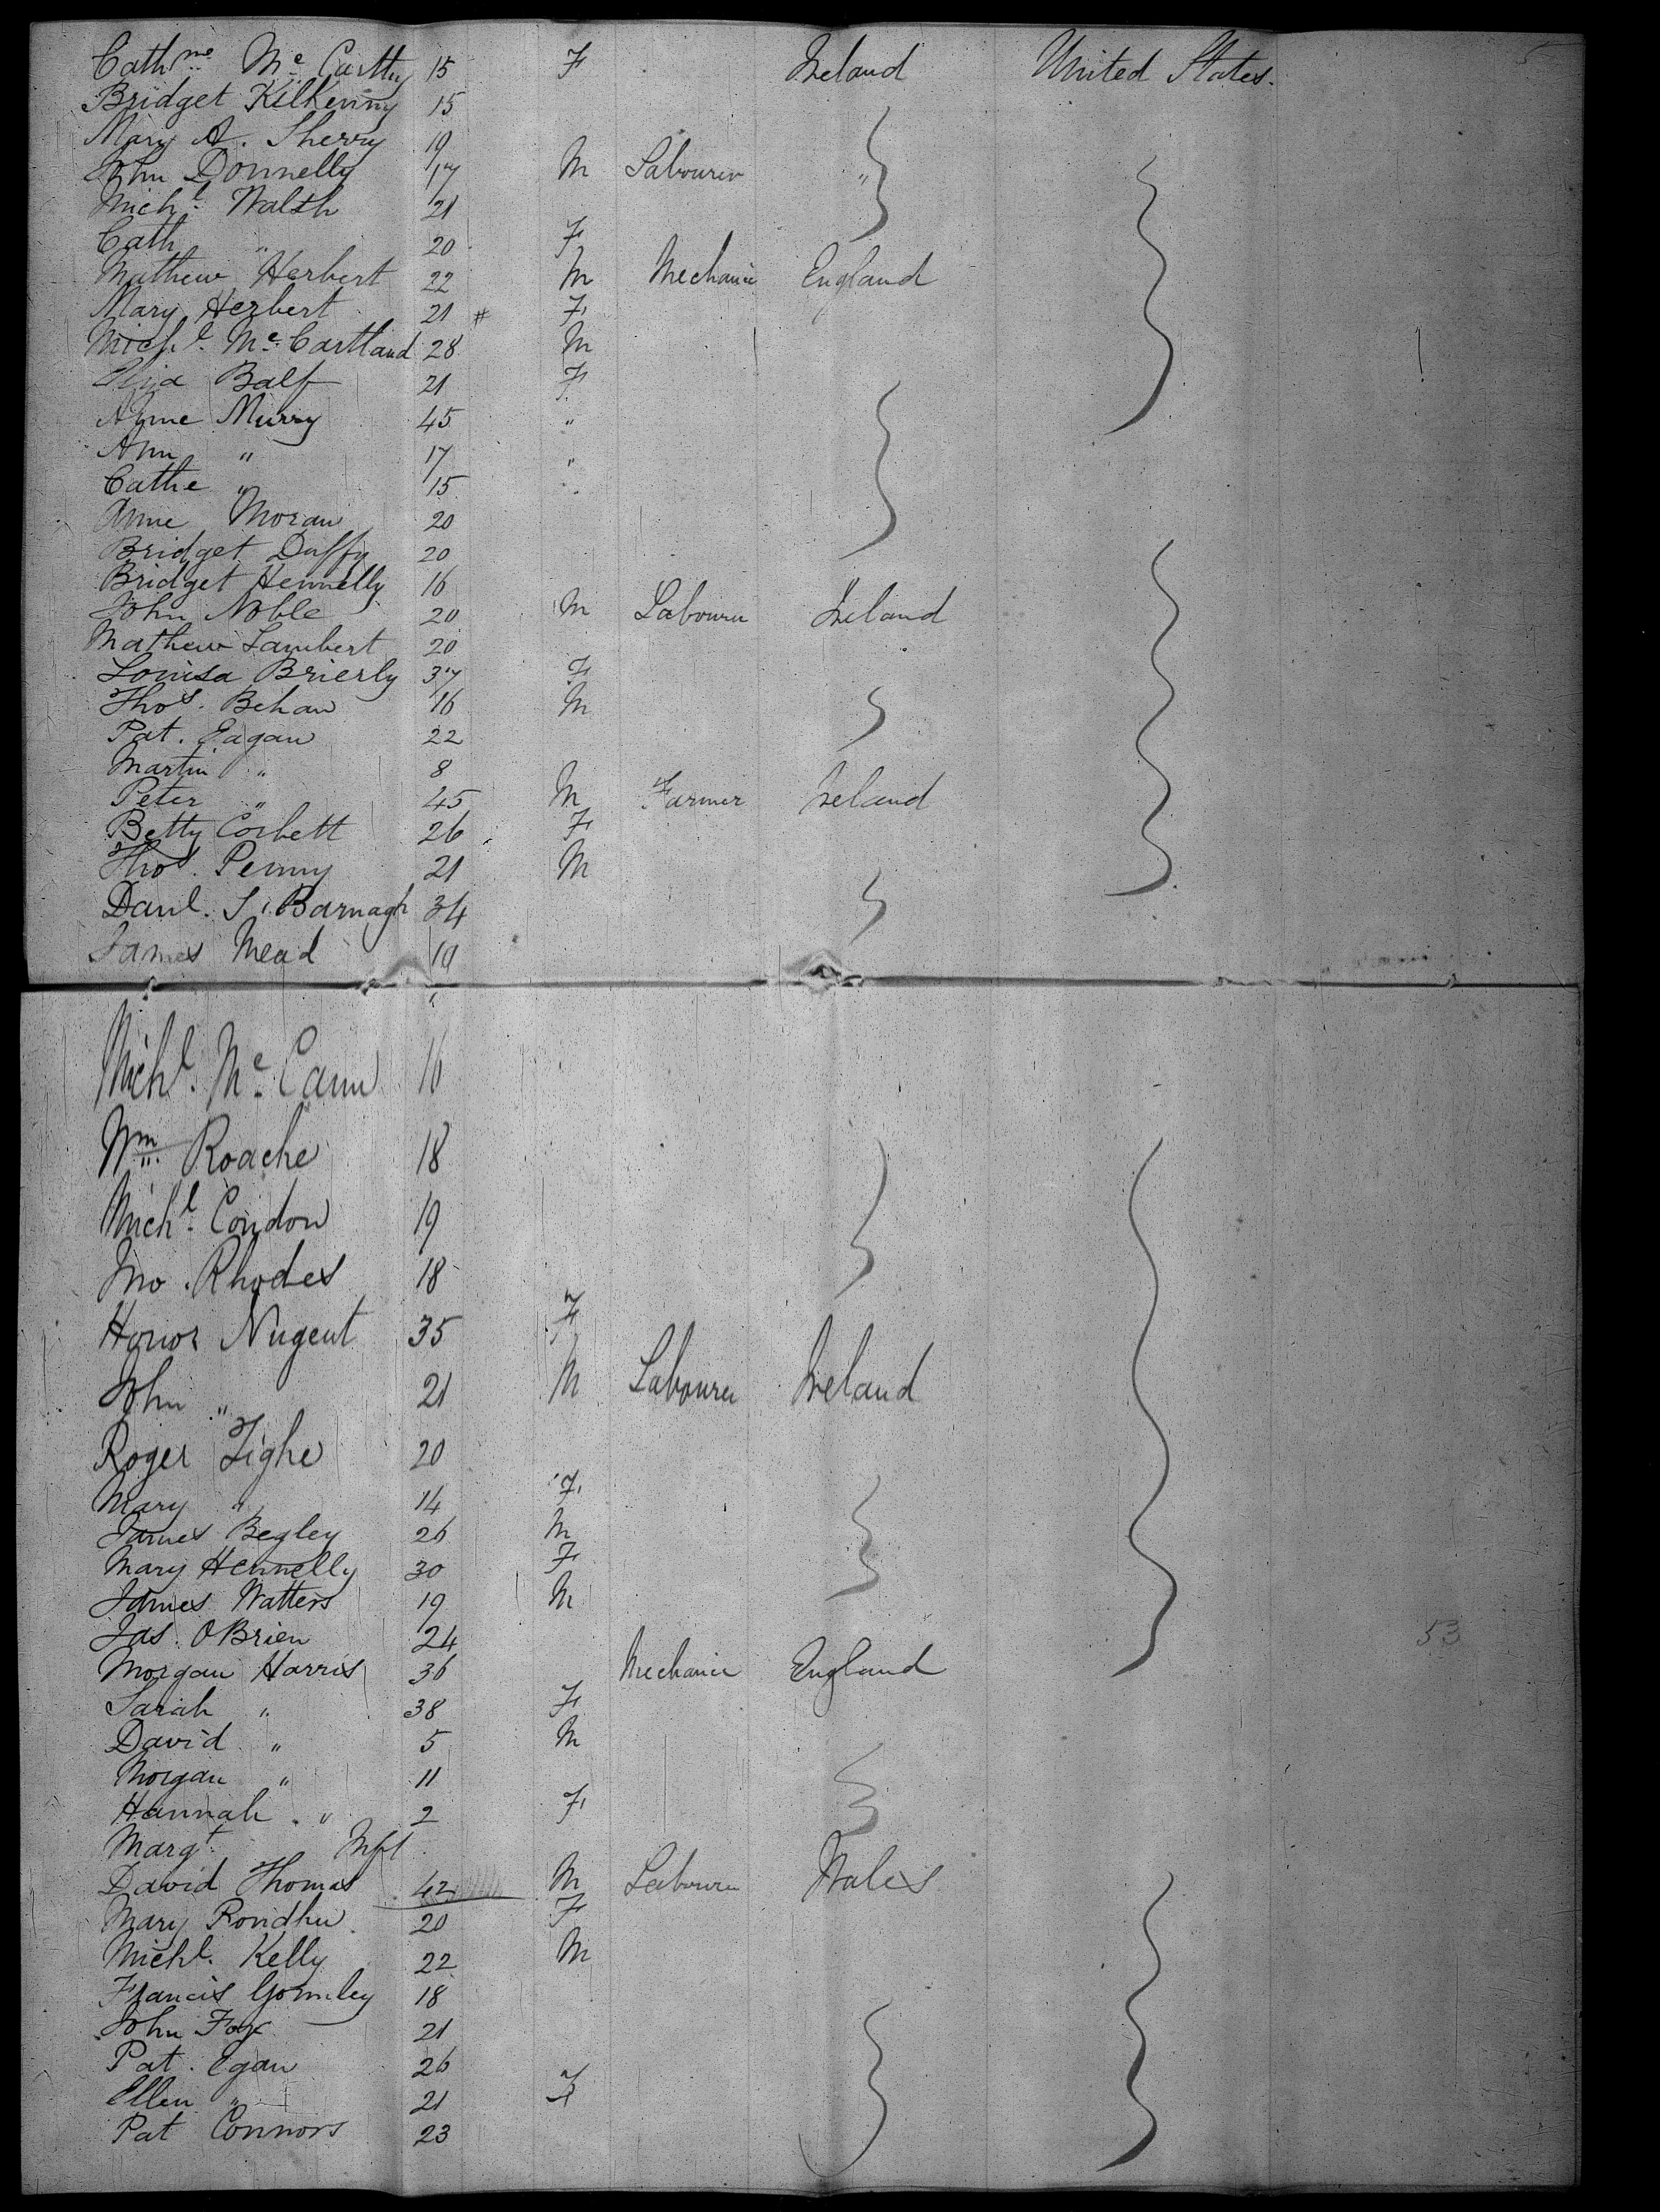 Cathne Mc Carthy 15 F Ireland United States.
Bridget Kilkenny 15
Mary A. Sherry 19
John Donnelly 17 M Labourer "
Michl. Walsh 21
Cath " 20 F
Mathew Herbert 22 M Mechanic England
Mary Herbert 21 # F
Michl. Mc Cartland 28 M
Balf 21 F
Anne Murry 45 "
Ann " 17 "
Cathe " 15 "
Anne Moran 20
Bridget Duffy 20
Bridget Hennelly 16
John Noble 20 M Labourer Ireland
Mathew Lambert 20
Louisa Brierly 37 F
Thos. Behan 16 M
Pat. Eagan 22
Martin " 8
Peter " 45 M Farmer Ireland
Betty Corbett 26 F
Thos. Penny 21 M
Danl. S. Barnagh 34
James Mead 19
Michl. Mc Cann 16
Wm. Roache 18
Michl. Condon 19
Jno. Rhodes 18
Honor Nugent 35 F
John " 21 M Labourer Ireland
Roger Tighe 20
Mary " 14 F
James Begley 26 M
Mary Hennelly 30 F
James Watters 19 M
Jas. OBrien 24 53
Morgan Harris 36 Mechanic England
Sarah " 38 F
David " 5 M
Morgan " 11
Hannah " 2 F
Margt. Inft
David Thomas 42 M Labourer Wales
Mary 20 F
Michl. Kelly 22 M
Francis Gormley 18
John Fox 21
Pat. Egan 26
Ellen " 21 F
Pat Connors 23